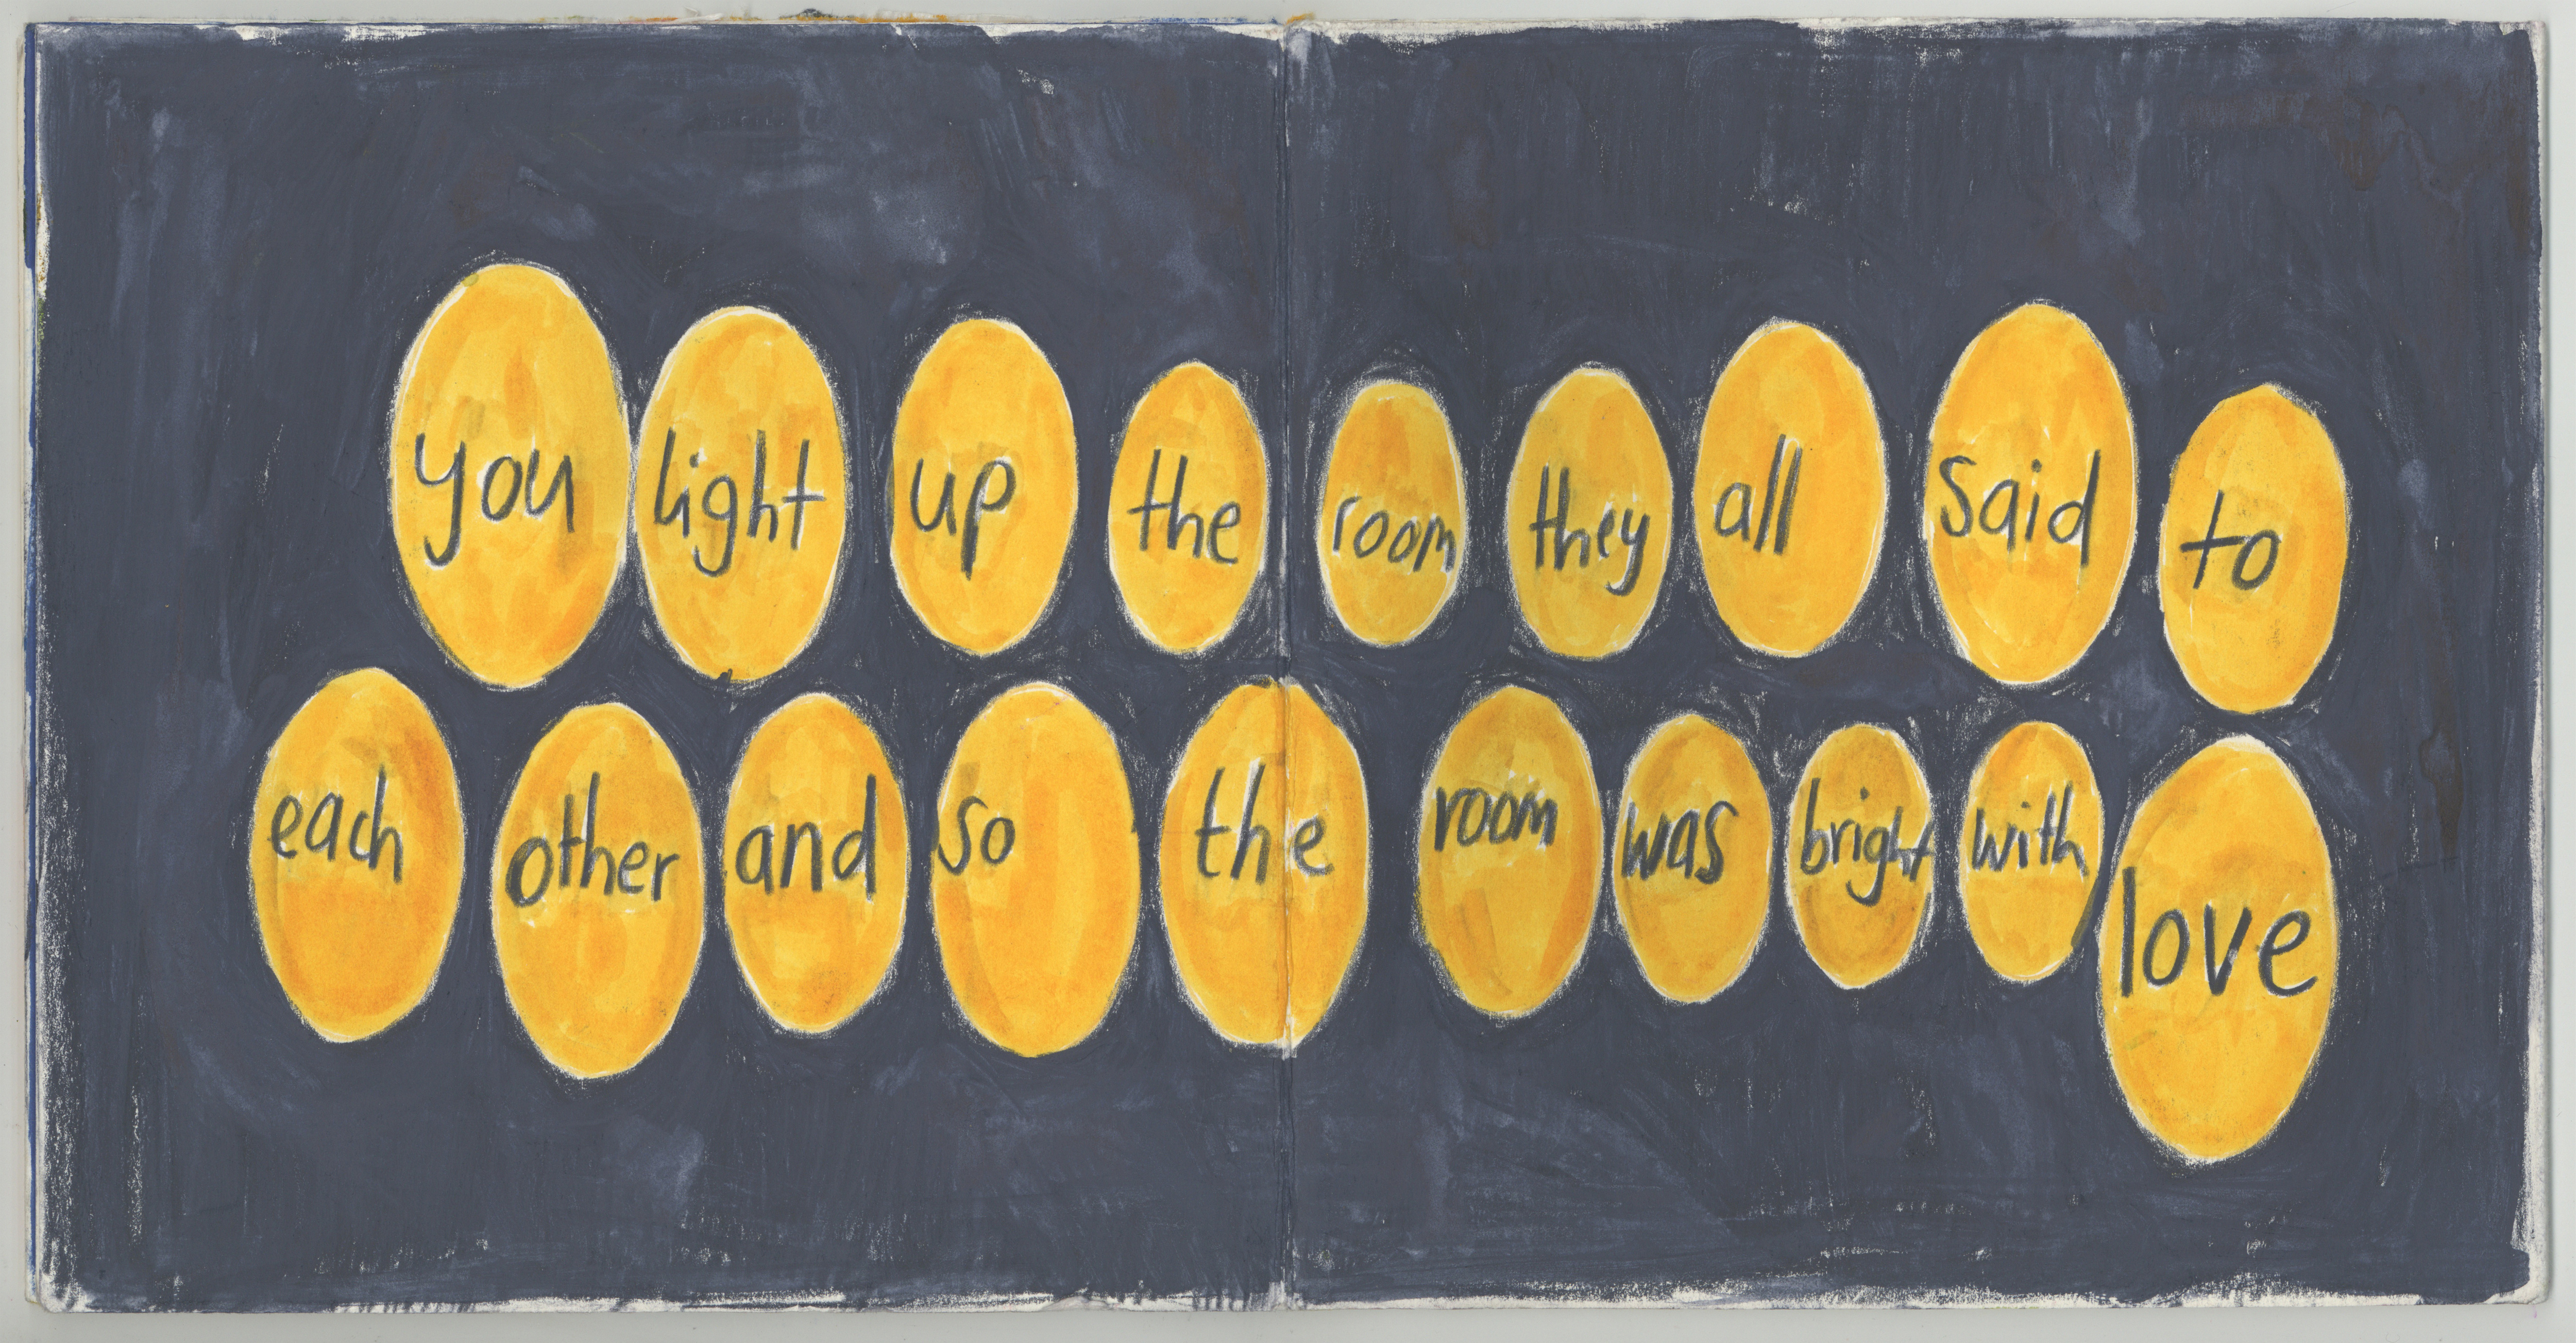 you light up the room they all said to
each other and so the room was bright with love